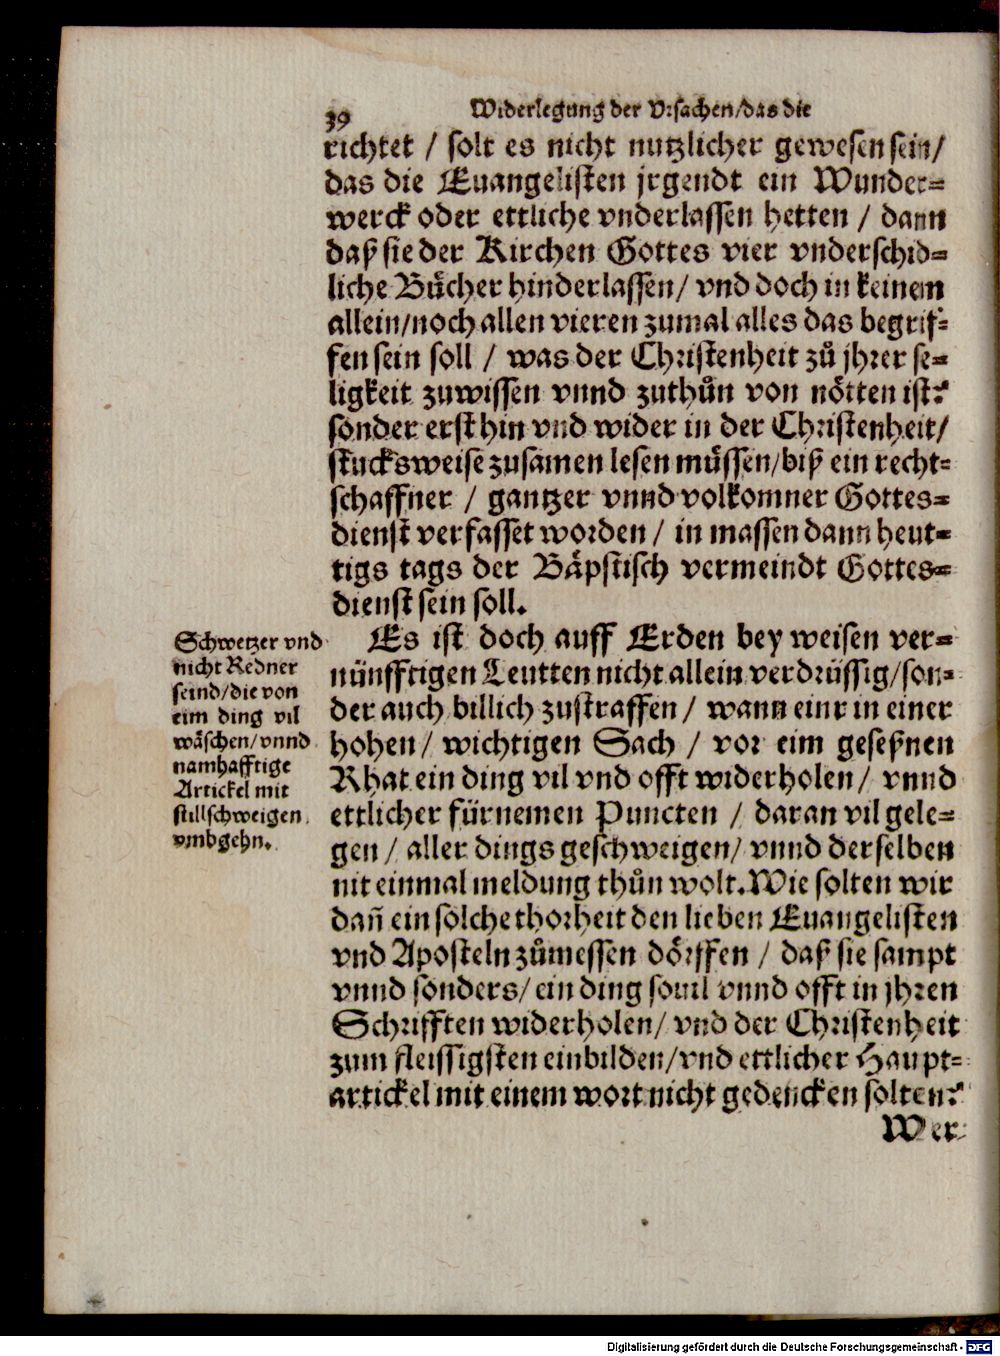 39
Widerlegung der Vrsachen/das die
richtet / solt es nicht nutzlicher gewesen sein/
das die Euangelisten jrgendt ein Wunder=
werck oder ettliche vnderlassen hetten / dann
daß sie der Kirchen Gottes vier vnderschid=
liche Bücher hinderlassen/ vnd doch in keinem
allein/noch allen vieren zumal alles das begrif=
fen sein soll / was der Christenheit zů jhrer se=
ligkeit zuwissen vnnd zuthůn von nötten ist?
sonder erst hin vnd wider in der Christenheit/
stucksweise zusamen lesen müssen/biß ein recht=
schaffner / gantzer vnnd volkomner Gottes=
dienst verfasset worden / in massen dann heut=
tigs tags der Bäpstisch vermeindt Gottes=
dienst sein soll.
Es ist doch auff Erden bey weisen ver=
nünfftigen Leutten nicht allein verdrüssig/son=
der auch billich zustraffen / wann einr in einer
hohen/ wichtigen Sach / vor eim geseßnen
Rhat ein ding vil vnd offt widerholen/ vnnd
ettlicher fürnemen Puncten / daran vil gele=
gen / aller dings geschweigen/ vnnd derselben
nit einmal meldung thůn wolt. Wie solten wir
dañ ein solche thorheit den lieben Euangelisten
vnd Aposteln zůmessen dörffen / daß sie sampt
vnnd sonders/ ein ding souil vnnd offt in jhren
Schrifften widerholen/ vnd der Christenheit
zum fleissigsten einbilden/vnd ettlicher Haupt=
artickel mit einem wort nicht gedencken solten?
Wer
Schwetzer vnd
nicht Redner
seind/die von
eim ding vil
wäschen/vnnd
namhafftige
Artickel mit
stillschweigen
vmbgehn.
Digitalisierung gefördert durch die Deutsche Forschungsgemeinschaft - DFG